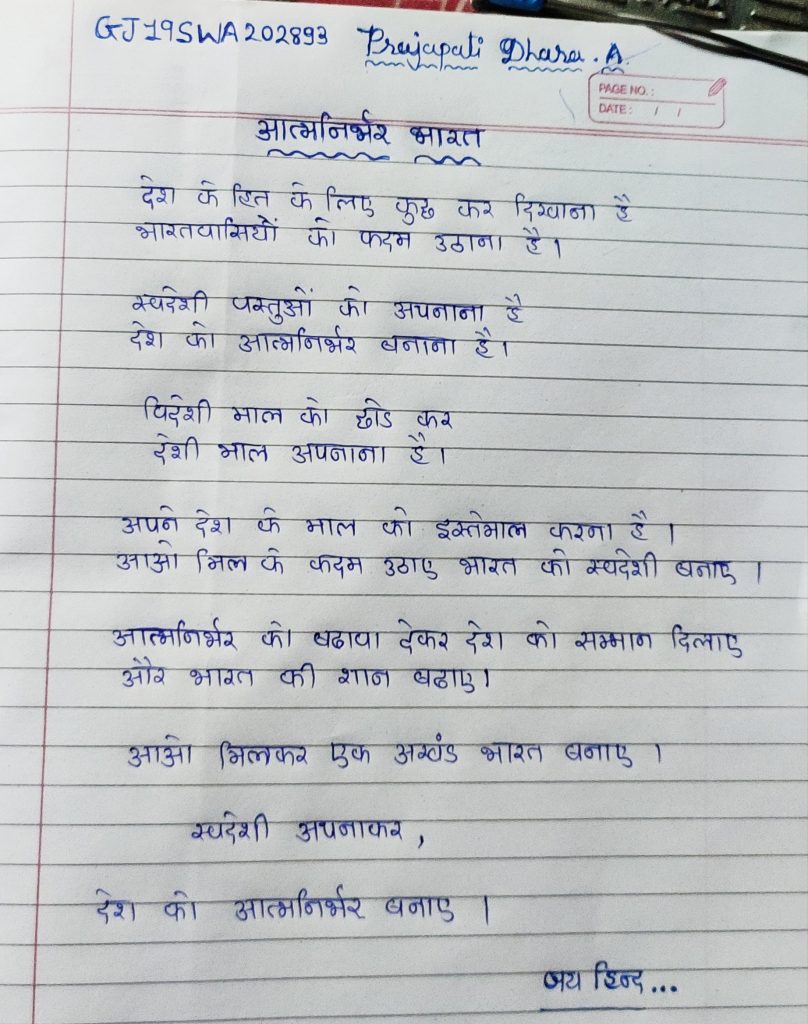 GJ19SWA202893 Prajapati Dhara. A.
PAGE NO.:
DATE: / /
आत्मनिर्भर भारत
देश के हित के लिए कुछ कर दिखाना है
भारतवासियों को कदम उठाना है।
स्वदेशी वस्तुओं को अपनाना है
देश को आत्मनिर्भर बनाना है।
विदेशी माल को छोड कर
देशी माल अपनाना है।
अपने देश के माल को इस्तेमाल करना है ।
आओ मिल के कदम उठाए भारत को स्वदेशी बनाए ।
आत्मनिर्भर को बढावा देकर देश को सम्मान दिलाए
और भारत की शान बढाए।
आओ मिलकर एक अखंड भारत बनाए ।
स्वदेशी अपनाकर,
देश को आत्मनिर्भर बनाए ।
जय हिन्द...